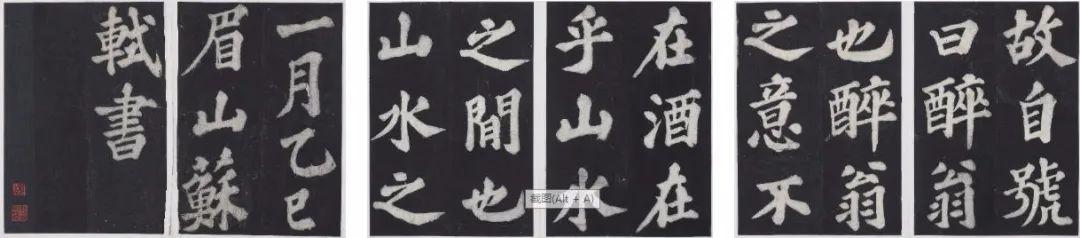 故自號
曰醉翁
也醉翁
之意不
在酒在
乎山水
之閒也
山水之
一月乙巳
眉山蘇
軾書
截图(Alt + A)